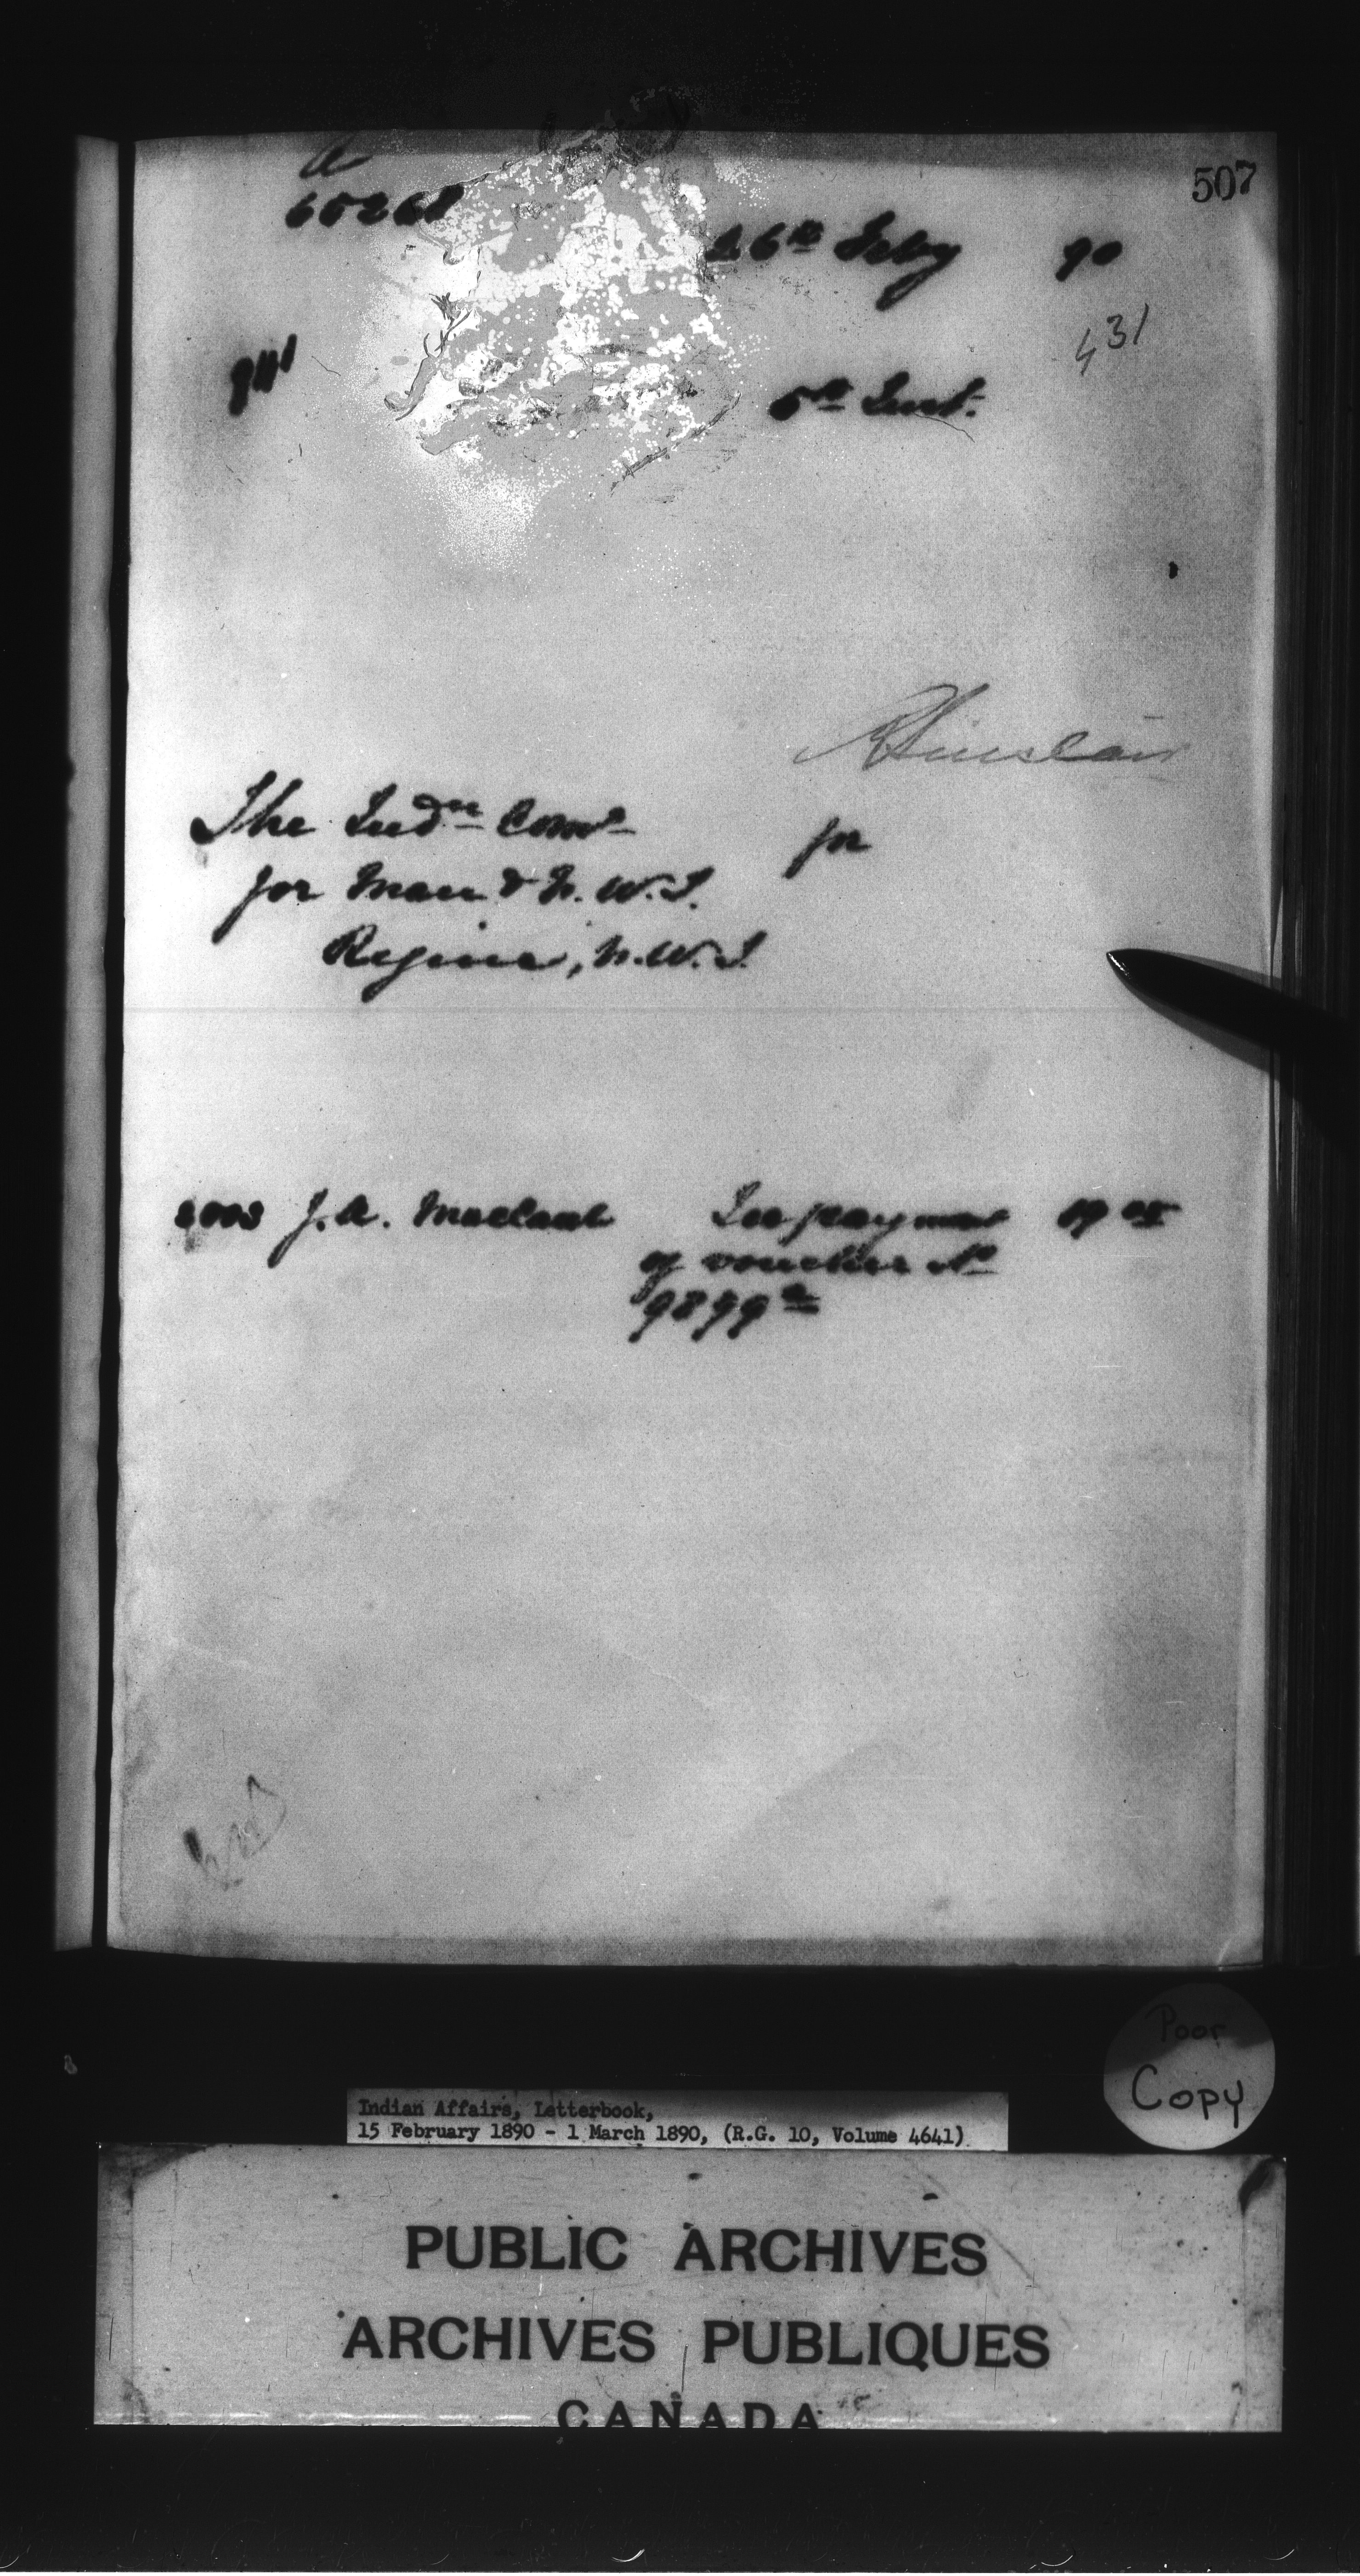 507
A
60268
26th Feby 90
431
5th Inst.
R Sinclair
The Indn Comr
for Man & N.W.T.
Regina, N.W.T.
for
J.A.
In payment
of voucher No
Poor
Copy
Indian Affairs, Letterbook,
15 February 1890 - 1 March 1890, (R.G. 10, Volume 4641)
PUBLIC ARCHIVES
ARCHIVES PUBLIQUES
CANADA